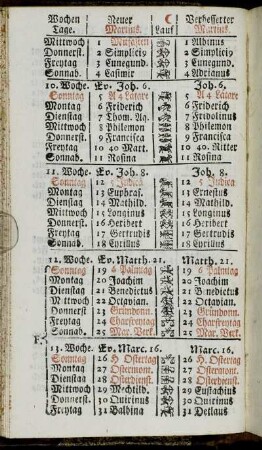 Wochen Neuer ☾ Verbesserter
Tage. Martius. Lauf Martius.
Mittwoch 1 1 Albinus
Donnerst. 2 Simpliciȝ 2 Simpliciȝ
Freytag 3 Cunegund. 3 Cunegund.
Sonnab. 4 Casimir 4 Adrianus
10. Woche. Ev. Joh. 6. Joh. 6.
Sonntag 5 R 4 Lätare 5 R 4 Lätare
Montag 6 Friderich 6 Friderich
Dienstag 7 Thom. Aq. 7 Fridolinus
Mittwoch 8 Philemon 8 Philemon
Donnerst. 9 Francisca 9 Francisca
Freytag 10 40 Mart. 10 40. Ritter
Sonnab. 11 Rosina 11 Rosina
11. Woche. Ev. Joh. 8. Joh. 8.
Sonntag 12 5 Judica 12 5 Judica
Montag 13 Euphras. 13 Ernestus
Dienstag 14 Mathild. 14 Mathild.
Mittwoch 15 Longinus 15 Longinus
Donnerst. 16 Heribert 16 Heribert
Freytag 17 Gertrudis 17 Gertrudis
Sonnab. 18 Cyrillus 18 Cyrillus
12. Woche. Ev. Matth. 21. Matth. 21.
Sonntag 19 6 Palmtag 19 6 Palmtag
Montag 20 Joachim 20 Joachim
Dienstag 21 Benedictus 21 Benedictus
Mittwoch 22 Octavian. 22 Octavian.
Donnerst 23 Gründonn. 23 Gründonn.
Freytag 24 Charfreytag 24 Charfreytag
Sonnab. 25 Mar. Verk. 25 Mar. Verk.
13. Woche. Ev. Marc. 16. Marc. 16.
Sonntag 26 H. Ostertag 26 H. Ostertag
Montag 27 Ostermont. 27 Ostermont.
Dienstag 28 Osterdienst. 28 Osterdienst.
Mittwoch 29 Mechtild. 29 Eustachius
Donnerst. 30 Quirinus 30 Quirinus
Freytag 31 Balbina 31 Detlaus